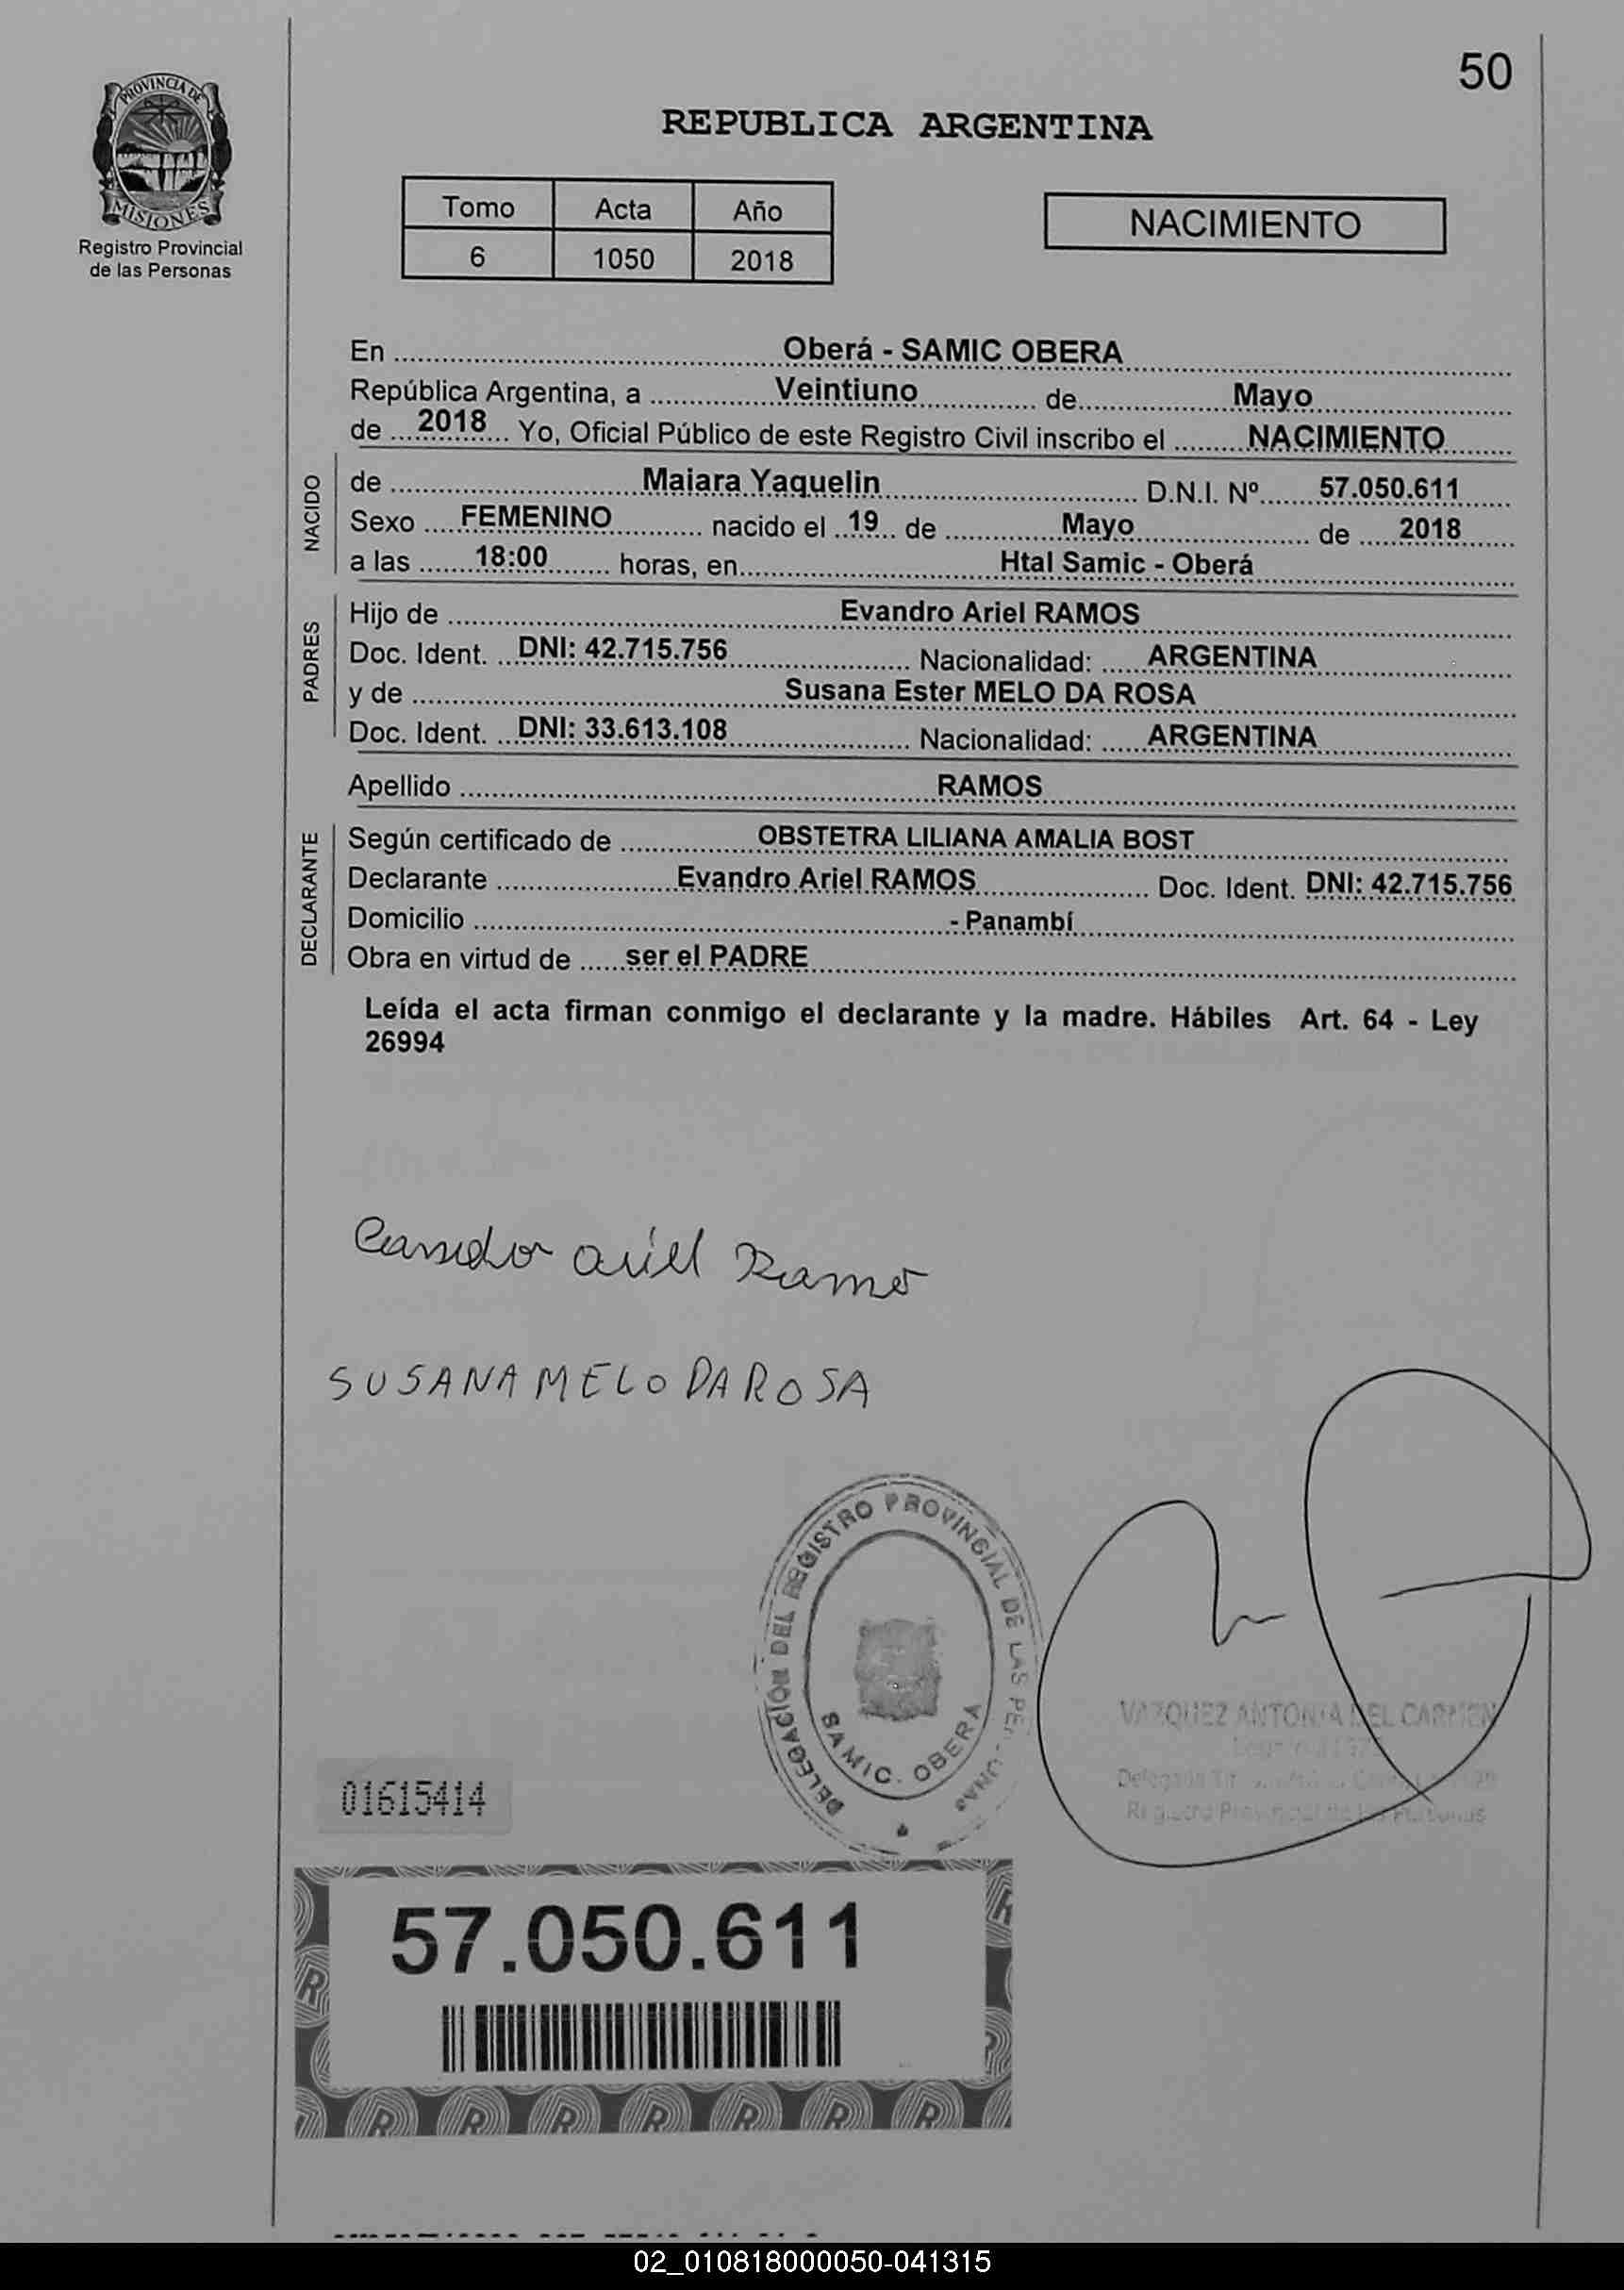 50
PROVINCIA DE
MISIONES
Registro Provincial
de las Personas
REPUBLICA ARGENTINA
Tomo Acta Año
6 1050 2018
NACIMIENTO
En Oberá - SAMIC OBERA
República Argentina, a Veintiuno de Mayo
de 2018 Yo, Oficial Público de este Registro Civil inscribo el NACIMIENTO
NACIDO
de Maiara Yaquelin D.N.I. Nº 57.050.611
Sexo FEMENINO nacido el 19 de Mayo de 2018
a las 18:00 horas, en Htal Samic - Oberá
PADRES
Hijo de Evandro Ariel RAMOS
Doc. Ident. DNI: 42.715.756 Nacionalidad: ARGENTINA
y de Susana Ester MELO DA ROSA
Doc. Ident. DNI: 33.613.108 Nacionalidad: ARGENTINA
Apellido RAMOS
DECLARANTE
Según certificado de OBSTETRA LILIANA AMALIA BOST
Declarante Evandro Ariel RAMOS Doc. Ident. DNI: 42.715.756
Domicilio - Panambí
Obra en virtud de ser el PADRE
Leída el acta firman conmigo el declarante y la madre. Hábiles Art. 64 - Ley
26994
Ariel Ramos
SUSANA MELO DA ROSA
DELEGACIÓN DEL REGISTRO PROVINCIAL DE LAS PERSONAS
SAMIC. OBERA
VAZQUEZ ANTONIA DEL CARMEN
Registro Provincial de las Personas
01615414
57.050.611
02_010818000050-041315